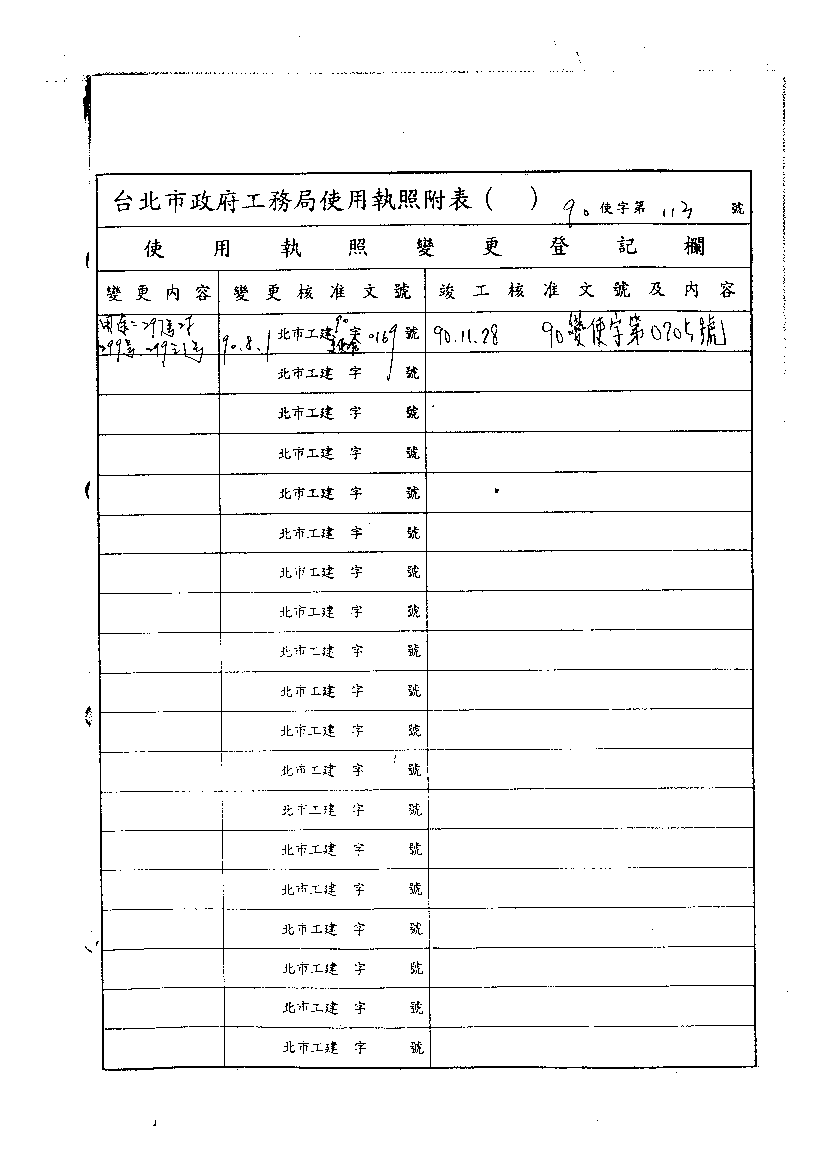 台北市政府工務局使用執照附表（　） 90使字第 113 號
使用執照變更登記欄
變更內容 變更核准文號 竣工核准文號及內容
90.8.1 北市工建 90 字 0169 號 90.11.28 90變使字第0205號
299號
北市工建 字 號
北市工建 字 號
北市工建 字 號
北市工建 字 號
北市工建 字 號
北市工建 字 號
北市工建 字 號
北市工建 字 號
北市工建 字 號
北市工建 字 號
北市工建 字 號
北市工建 字 號
北市工建 字 號
北市工建 字 號
北市工建 字 號
北市工建 字 號
北市工建 字 號
北市工建 字 號